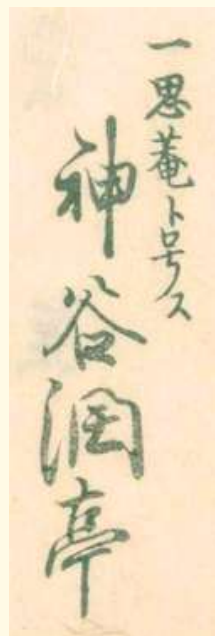 一思菴ト号ス
神谷潤亭